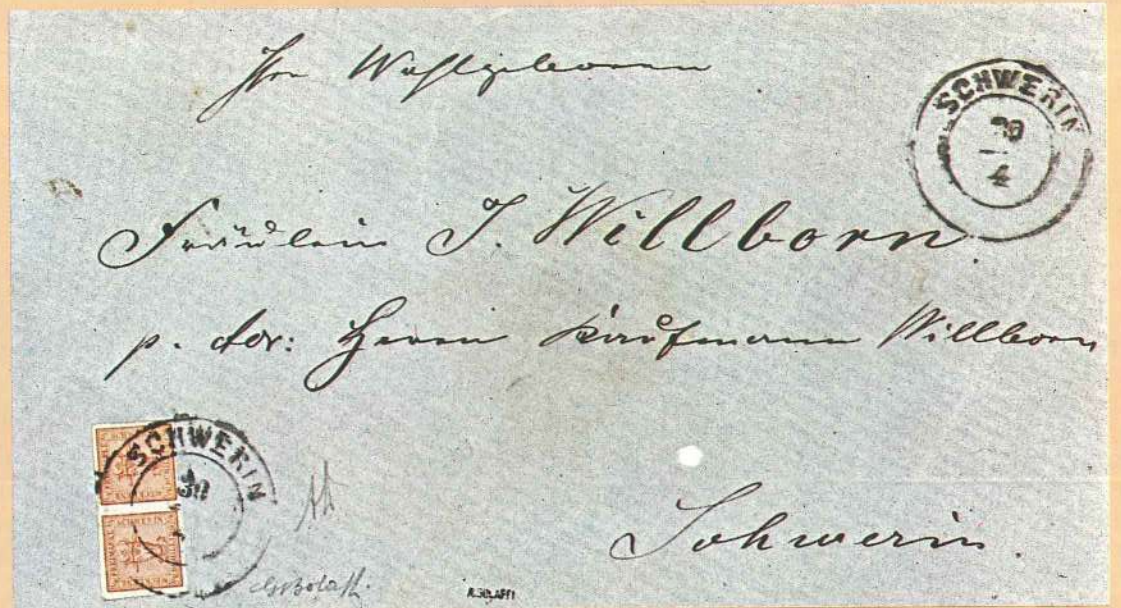 Ihr Wohlgeboren
SCHWERIN
30
4
Fräulein J. Willborn.
p. Adr: Herrn Kaufmann Willborn
SCHWERIN
30
4
Schwerin.
A. BOLAFFI